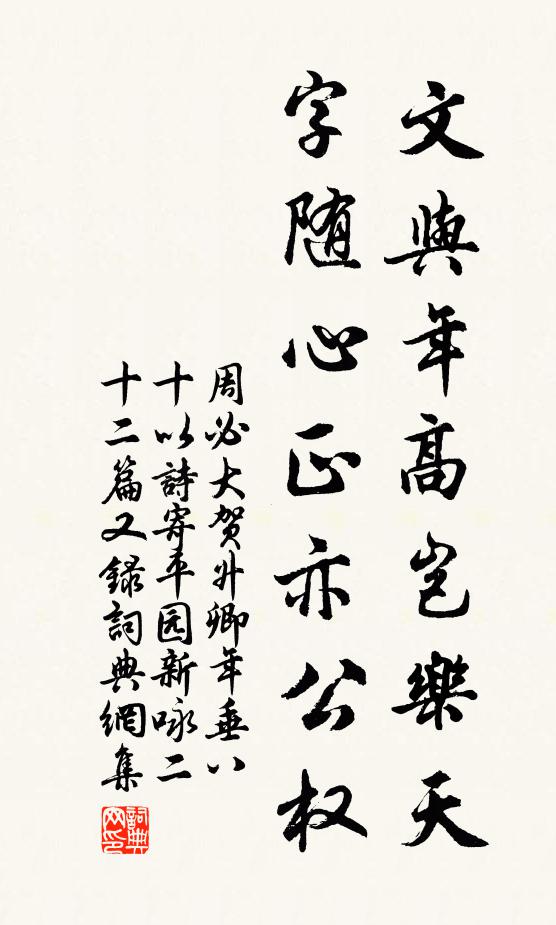 文與年高豈樂天
字随心正亦公权
周必大贺升卿年垂八
十以詩寄平园新咏二
十二篇又録詞典網集
詞典网印